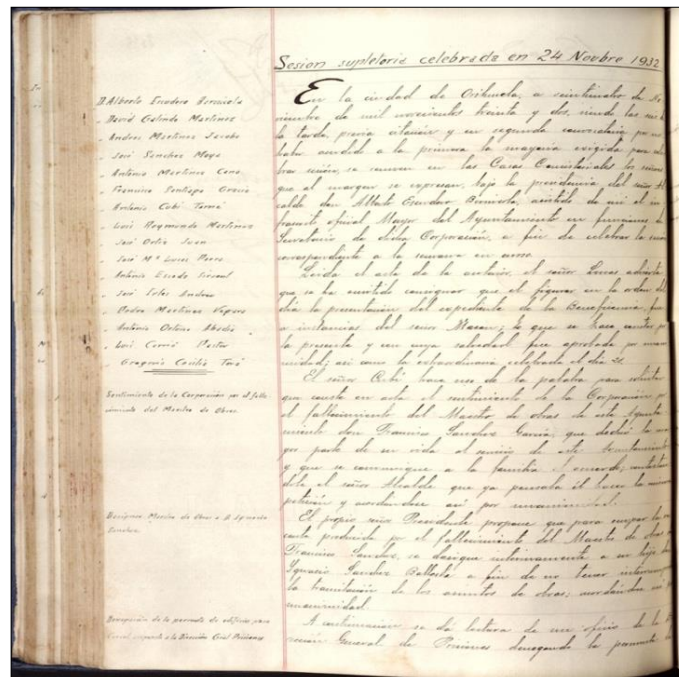 Sesion supletoria celebrada en 24 Novbre 1932
D. Alberto Escudero
" David Galindo Martinez
" Andres Martinez
" José Sanchez Moya
" Antonio Martinez Cano
" Francisco Santiago
" Antonio Cubí Tomé
" Luis Raymundo Martinez
" José Ortiz Juan
" José Mª Lucas
" Antonio Escudo
" José Andreu
" Pedro Martinez
" Antonio
" Luis Correa Pastor
Gregorio
Sentimiento de la Corporación por el falle-
cimiento del Maestro de Obras
Designan Maestro de Obras a D. Ygnacio
Sanchez
de la permuta de edificio para
a la Dirección Gral Prisiones
En la ciudad de Orihuela, a veinticuatro de No-
viembre de mil novecientos treinta y dos, siendo las
la tarde, previa citación y en segunda convocatoria por no
haber asistido a la primera la mayoria exigida para cele
brar sesión, se reunen en las Casas Consistoriales los señores
que al margen se expresan, bajo la presidencia del señor Al
calde don Alberto Escudero, asistido de mi el in
frascrito oficial Mayor del Ayuntamiento en funciones de
Secretario de dicha Corporación, a fin de celebrar la sesión
correspondiente a la semana en curso.
Leida el acta de la anterior, el señor Lucas advierte
que se ha omitido consignar que el figurar en la orden del
dia la presentación del expediente de la Beneficencia, fue
a instancias del señor; lo que se hace constar por
la presente y con cuya salvedad fue aprobada por unani
midad; asi como la extraordinaria celebrada el dia 21.
El señor Cubí hace uso de la palabra para solicitar
que conste en acta el sentimiento de la Corporación por
el fallecimiento del Maestro de obras de este Ayunta
miento don Francisco Sanchez Garcia, que dedicó la ma
yor parte de su vida al servicio de este Ayuntamiento
y que se comunique a la familia el acuerdo, contestan
dole el señor Alcalde que ya pensaba él hacer la misma
petición y acordandose asi por unanimidad.
El propio señor Presidente propone que para ocupar la va
cante producida por el fallecimiento del Maestro de obras
Francisco Sanchez, se designe interinamente a su hijo
Ygnacio Sanchez Ballesta a fin de no tener interrumpida
la tramitación de los asuntos de obras; acordandose asi por
unanimidad.
A continuación se dá lectura de un oficio de la Di
rección General de Prisiones denegando la permuta